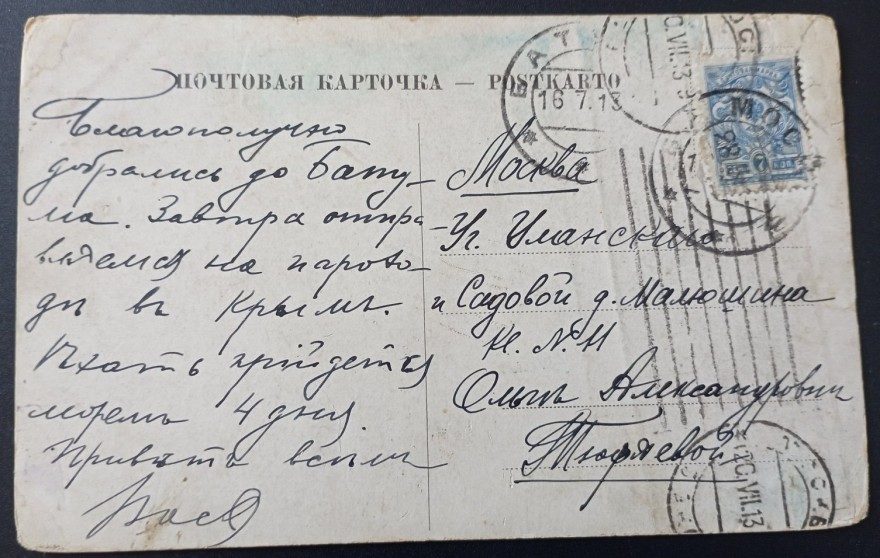 ПОЧТОВАЯ КАРТОЧКА — POSTKARTO
Благополучно
добрались до Бату-
ма. Завтра отпра-
вляемся на парохо-
дѣ въ Крымъ.
Ѣхать прійдется
моремъ 4 дня
Привѣтъ всѣмъ
Вася
Москва
Уг. Уманскаго
и Садовой д. Малюшина
кв. N. 11
Ольгѣ Александровнѣ
Тюряевой
БАТ
16.7.13
МОС
7 КОП
20.VII.13